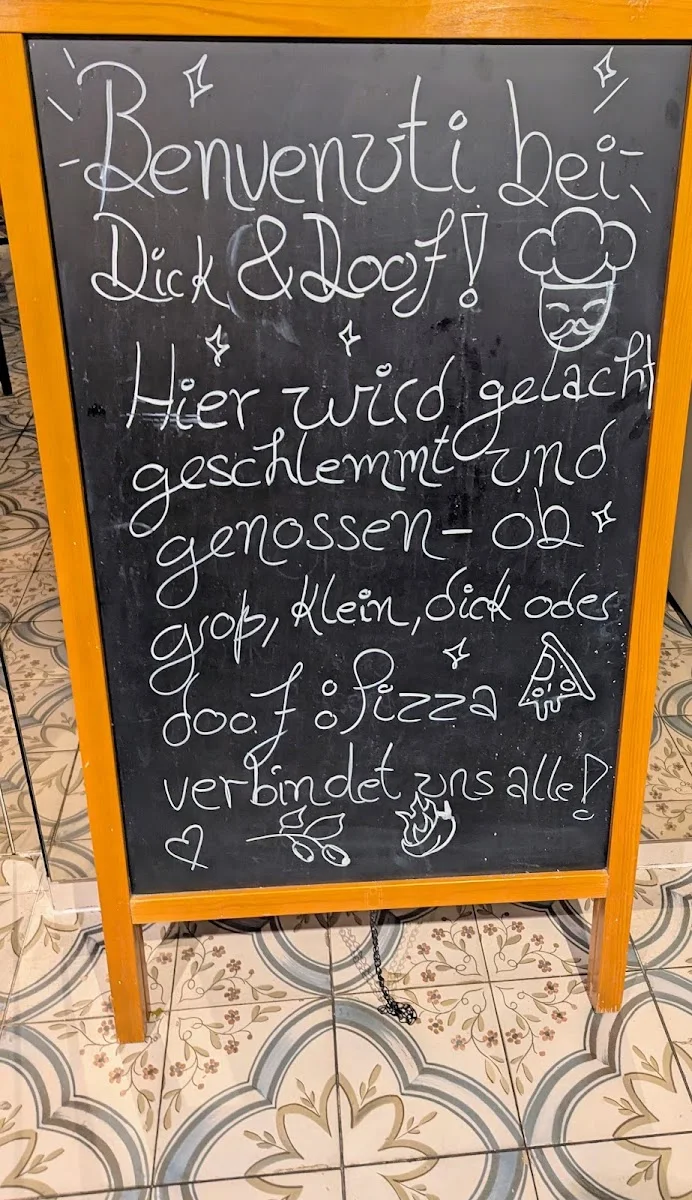 Benvenuti bei
Dick & Doof!
Hier wird gelacht
geschlemmt und
genossen - ob
groß, klein, dick oder
doof : Pizza
verbindet uns alle!